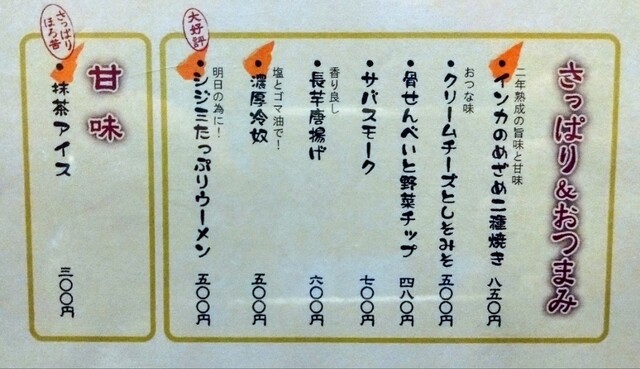 さっぱり&おつまみ
二年熟成の旨味と甘味
・インカのめざめ二種焼き 八五〇円
おつな味
・クリームチーズとしそみそ 五〇〇円
・骨せんべいと野菜チップ 四八〇円
・サバスモーク 七〇〇円
香り良し
・長芋唐揚げ 六〇〇円
塩とゴマ油で!
・濃厚冷奴 五〇〇円
大好評
明日の為に!
・シジミたっぷりウーメン 五〇〇円
甘味
さっぱり
ほろ苦
・抹茶アイス 三〇〇円